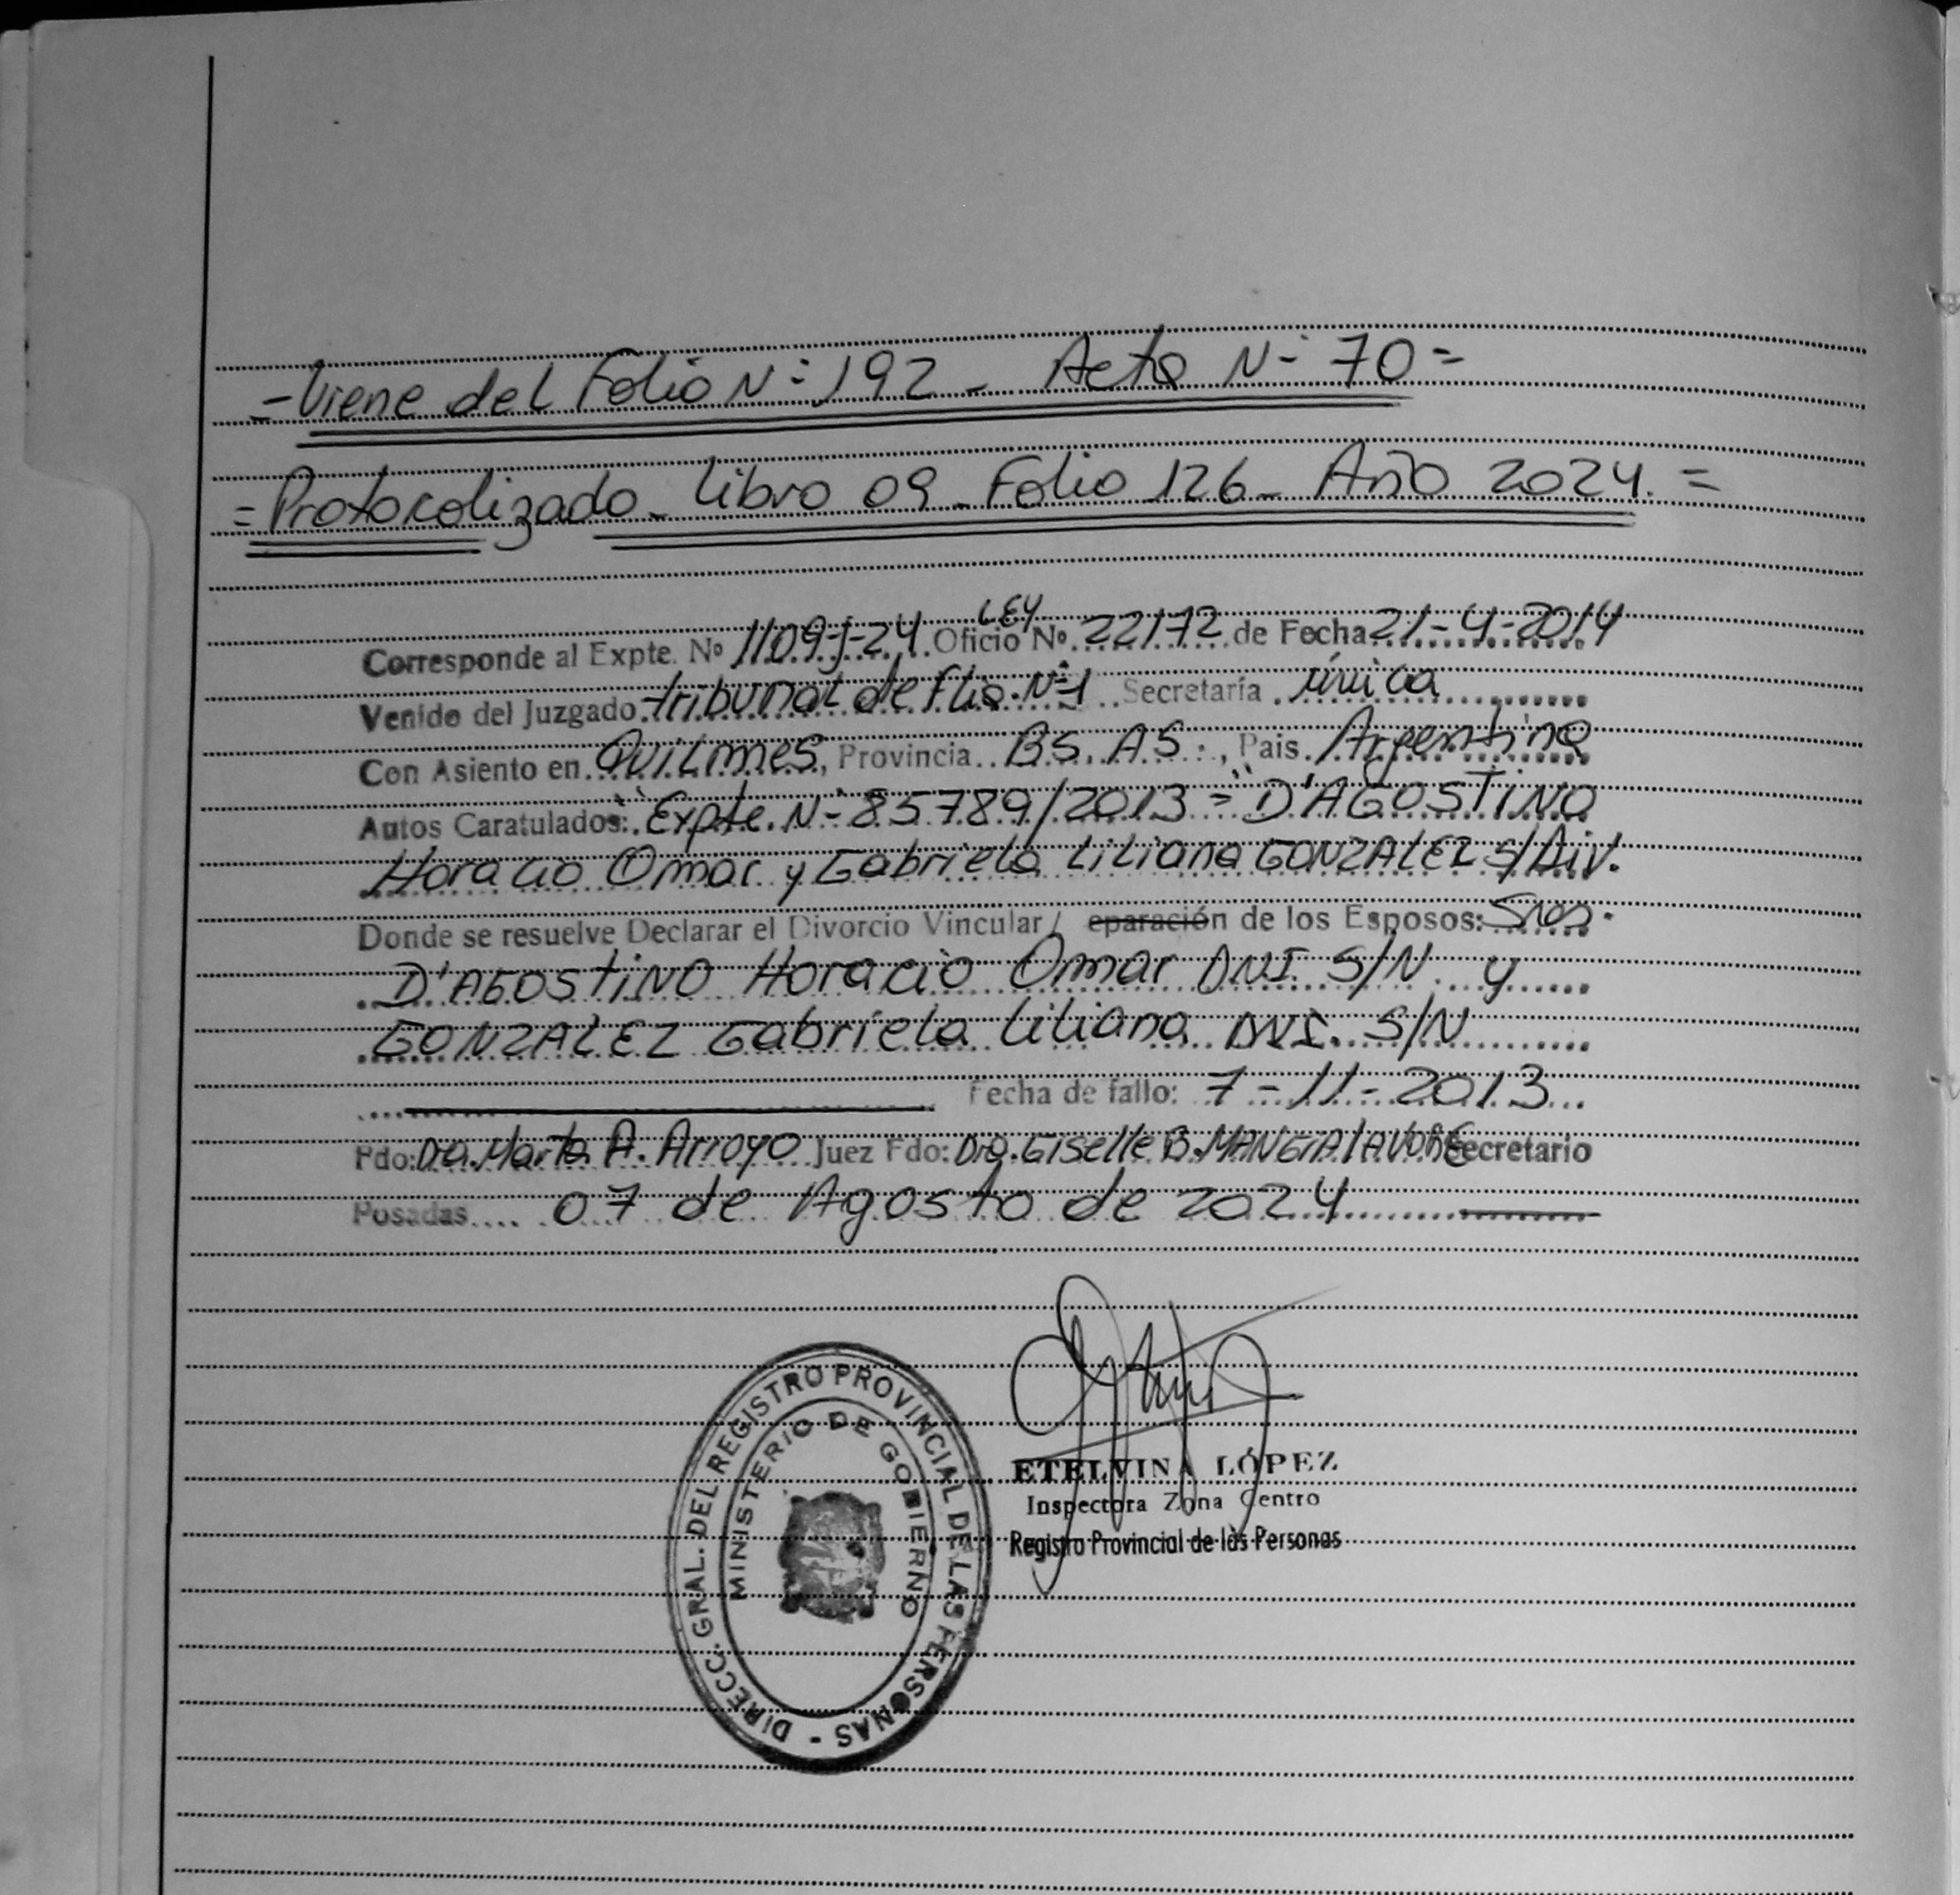 =Viene del Folio Nº 192 - Acta Nº 70=
=Protocolizado - Libro 09 - Folio 126 - Año 2024.=
LEY
Corresponde al Expte. Nº 1109-J-24 Oficio Nº 22172 de Fecha 21-4-2014
Venido del Juzgado tribunal de Flia. Nº1 Secretaría única
Con Asiento en Quilmes, Provincia BS. AS., Pais Argentina
Autos Caratulados: "Expte. Nº 85789/2013 = "D'AGOSTINO
Horacio Omar y Gabriela Liliana GONZALEZ S/Div.
Donde se resuelve Declarar el Divorcio Vincular / eparación de los Esposos: Sres.
D'AGOSTINO Horacio Omar DNI. S/N y
GONZALEZ Gabriela Liliana DNI. S/N
Fecha de fallo: 7-11-2013
Fdo: Dra. Marta A. Arroyo Juez Fdo: Dra. Giselle B. MANGIALAVORE Secretario
Posadas 07 de Agosto de 2024
DIRECC. GRAL. DEL REGISTRO PROVINCIAL DE LAS PERSONAS -
MINISTERIO DE GOBIERNO
ETELVINA LÓPEZ
Inspectora Zona Centro
Registro Provincial de las Personas